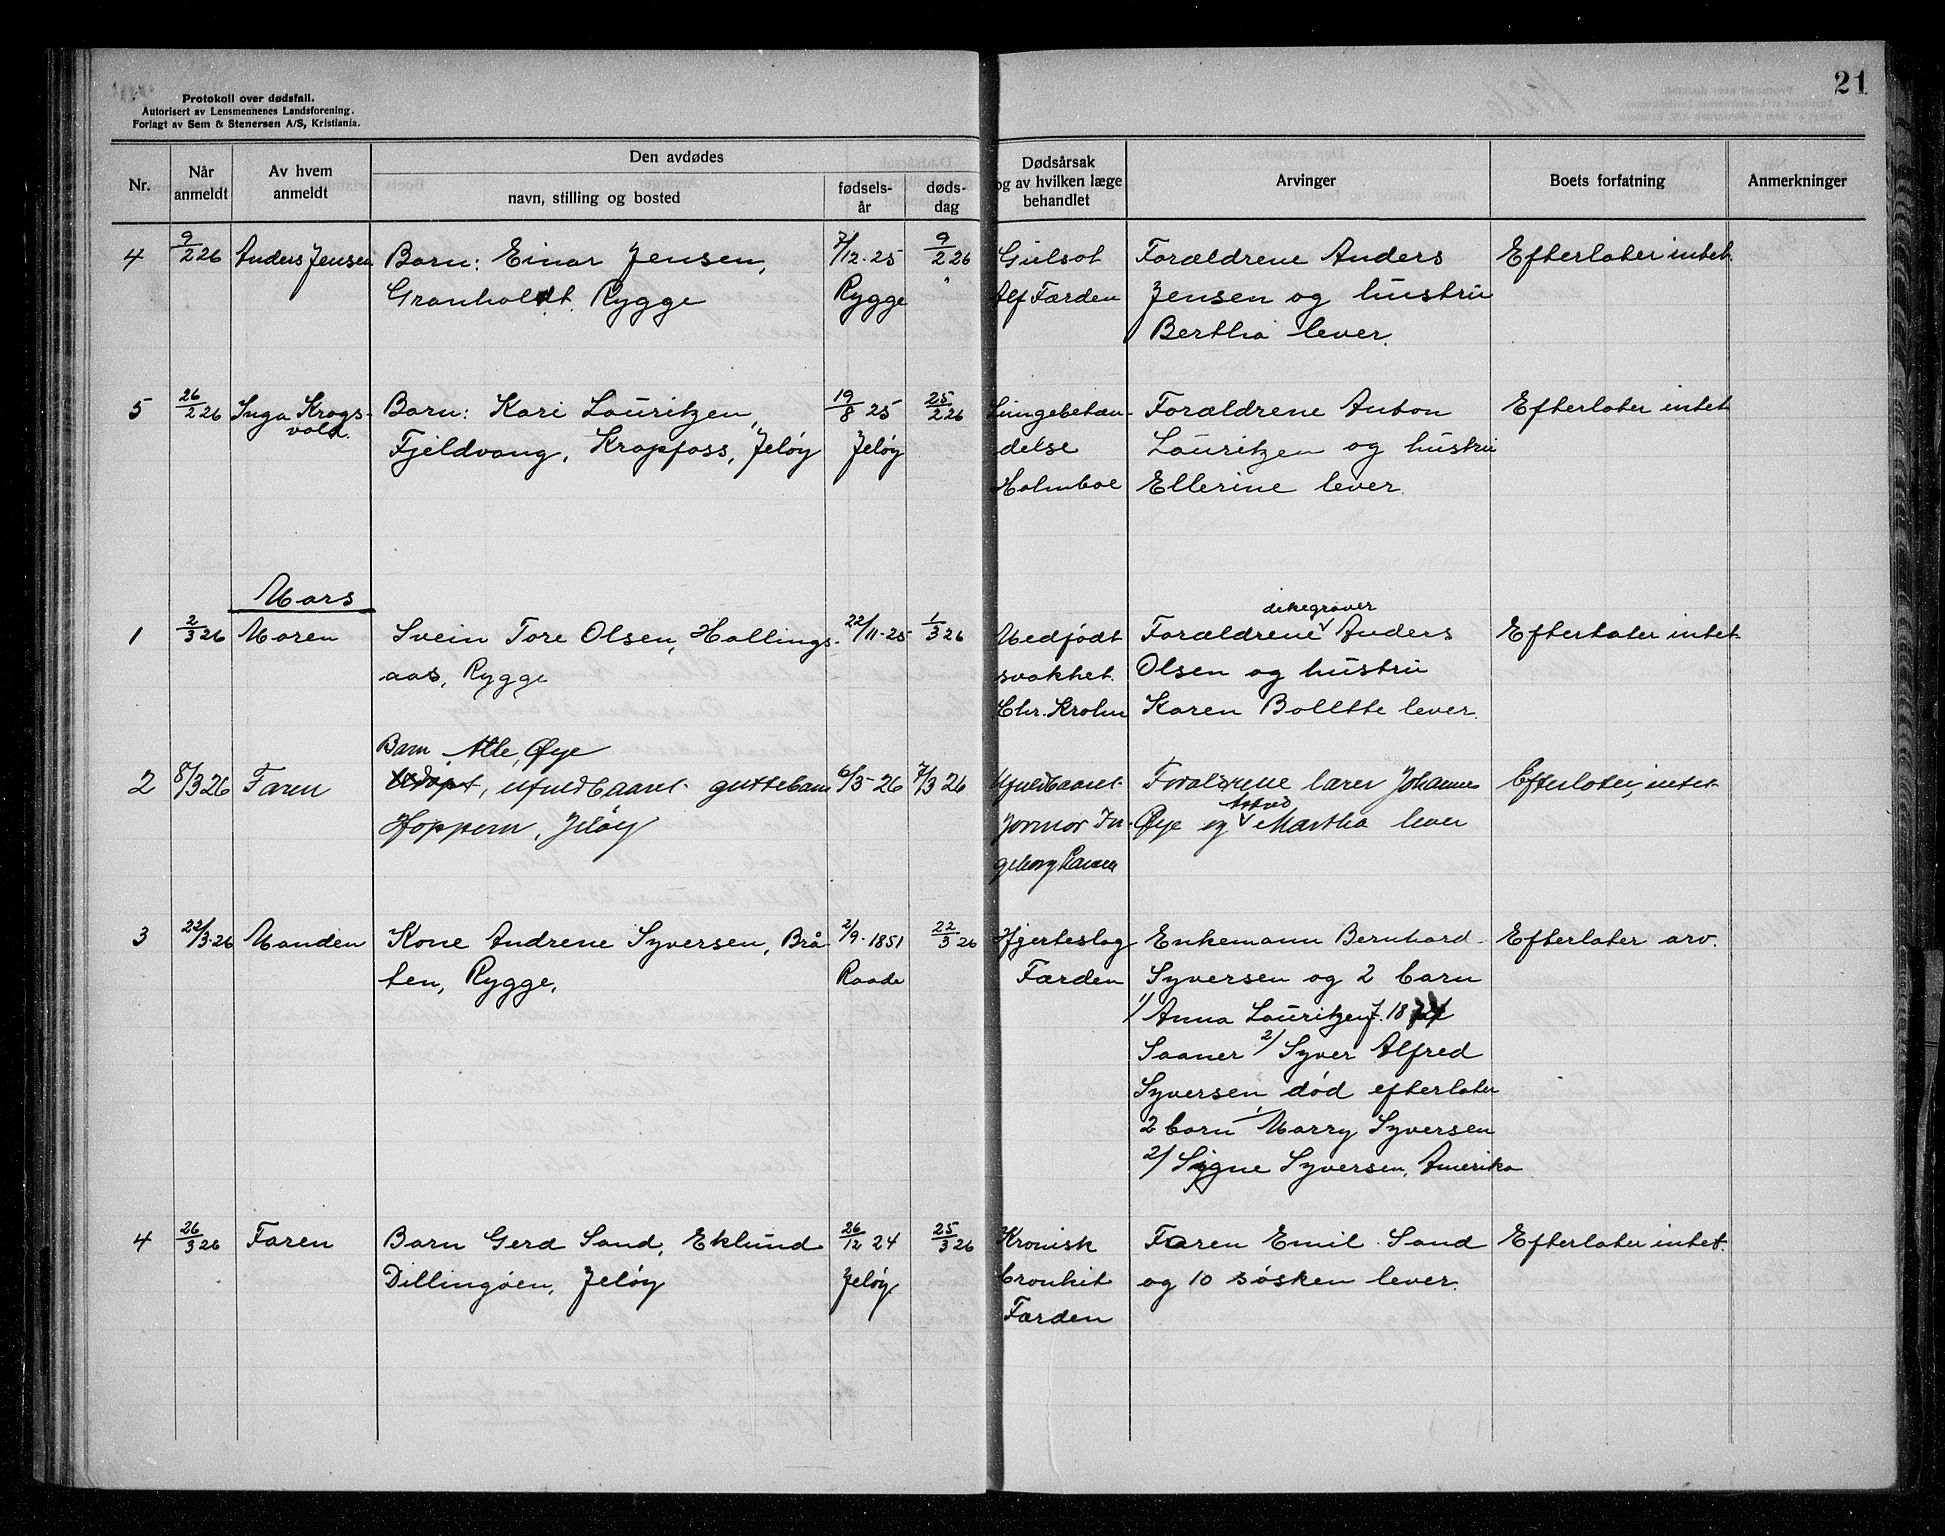 21
Protokoll over dødsfall.
Autorisert av Lensmennenes Landsforening.
Forlagt av Sem & Stenersen A/S, Kristiania.
Nr.
Når anmeldt
Av hvem anmeldt
Den avdødes
navn, stilling og bosted
fødsels-år
døds-dag
Dødsårsak
og av hvilken læge
behandlet
Arvinger
Boets forfatning
Anmerkninger
4 9/2 26 Anders Jensen Barn: Einar Jensen, 7/12-25 9/2 26 Gulsot Forældrene Anders Efterlater intet
Granholdt. Rygge Rygge " Alf Færden Jensen og hustru
Bertha lever.
5 26/2 26 Inga Krogs- Barn: Kari Lauritzen, 19/8 25 25/2 26 Lungebetæn- Forældrene Anton Efterlater intet
vold. Fjeldvang, Krapfoss, Jeløy Jeløy delse Lauritzen og hustru
Holmboe Ellerine lever.
Mars
dikegraver
1 2/3 26 Moren Svein Tore Olsen, Hallings- 22/11-25 1/3 26 Medfødt Forældrene Anders Efterlater intet
aas, Rygge svakhet. Olsen og hustru
Chr. Krohn Karen Bollette lever.
Barn Atle, Øye
2 8/3 26 Faren ufuldbaaret guttebarn 6/3-26 7/3 26 Ufuldbaaret Foraldrene lærer Johannes Efterlater intet
Hoppern, Jeløy Jormor In- Øye og Martha lever
geborg
3 22/3-26 Manden Kone Andrene Syversen, Brå- 2/9-1851 22/3 26 Hjerteslag Enkemann Bernhard Efterlater arv.
ten, Rygge, Raade Færden Syversen og 2 barn
1/ Anna Lauritzen f. 18
Saaner 2/ Syver Alfred
Syversen død efterlater
2 barn 1/ Marry Syversen
2/ Signe Syversen, Amerika
4 26/3 26 Faren Barn Gerd Sand, Eklund 26/12 24 25/3 26 Kronisk Faren Emil Sand Efterlater intet.
Dillingøen, Jeløy Jeløy bronkit og 10 søsken lever.
Færden